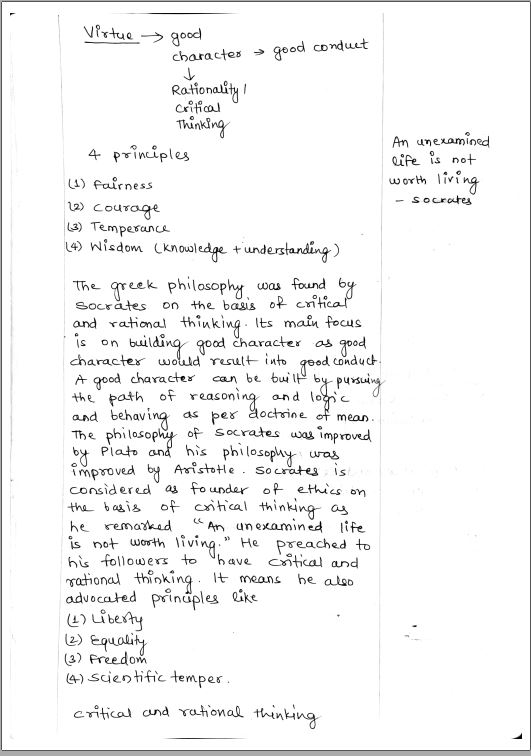 Virtue → good
character → good conduct
↓
Rationality/
Critical
Thinking
4 principles
An unexamined
life is not
worth living
- Socrates
(1) Fairness
(2) Courage
(3) Temperance
(4) Wisdom (knowledge + understanding)
The greek philosophy was found by
Socrates on the basis of critical
and rational thinking. Its main focus
is on building good character as good
character would result into good conduct.
A good character can be built by pursuing
the path of reasoning and logic
and behaving as per doctrine of mean.
The philosophy of Socrates was improved
by Plato and his philosophy was
improved by Aristotle. Socrates is
considered as founder of ethics on
the basis of critical thinking as
he remarked "An unexamined life
is not worth living." He preached to
his followers to have critical and
rational thinking. It means he also
advocated principles like
(1) Liberty
(2) Equality
(3) Freedom
(4) Scientific temper.
Critical and rational thinking